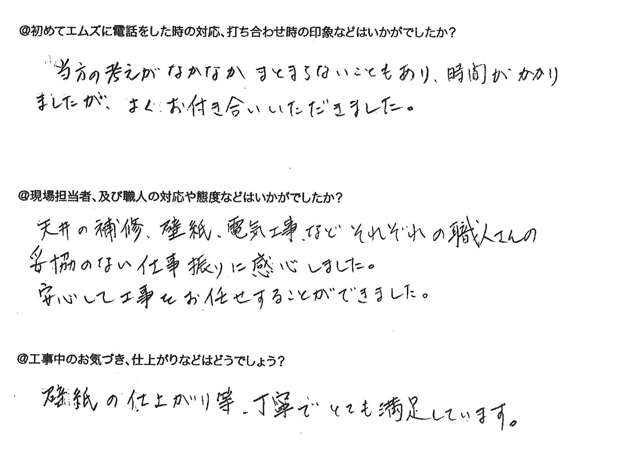 @初めてエムズに電話をした時の対応、打ち合わせ時の印象などはいかがでしたか?
当方の考えがなかなかまとまらないこともあり、時間がかかり
ましたが、よくお付き合いいただきました。
@現場担当者、及び職人の対応や態度などはいかがでしたか?
天井の補修、壁紙、電気工事、などそれぞれの職人さんの
妥協のない仕事振りに感心しました。
安心して工事をお任せすることができました。
@工事中のお気づき、仕上がりなどはどうでしょう?
壁紙の仕上がり等、丁寧でとても満足しています。